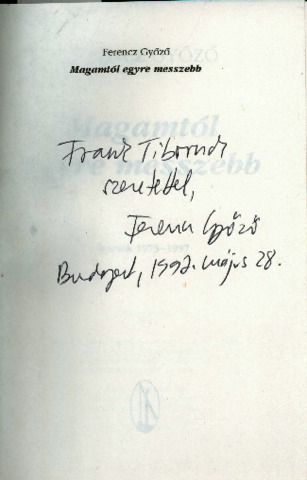 Ferencz Győző
Magamtól egyre messzebb
Frank Tibornak
szeretettel,
Ferencz Győző
Budapest, 1997. május 28.